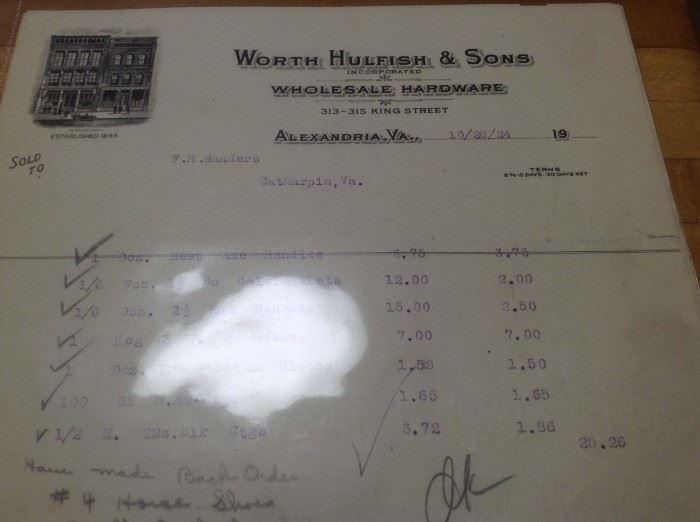 WORTH HULFISH & SONS
INCORPORATED
WHOLESALE HARDWARE
313-315 KING STREET
ESTABLISHED 1844
ALEXANDRIA, VA., 10/28/24 19
SOLD TO
F.M.Sanders
Catharpin,Va.
TERMS
2% 10 DAYS. 30 DAYS NET
1 Doz. Best Axe Handles 3.75 3.75
1/6 Foz. 1½ Bu 12.00 2.00
1/6 Doz. 1½ 15.00 2.50
1 Keg 7.00 7.00
1 Doz. 1.50 1.50
100 32 1.65 1.65
1/2 M. 22s.Blk Ctgs 3.72 1.86
20.26
Have made Back Order
# 4 Horse Shoes
Ok